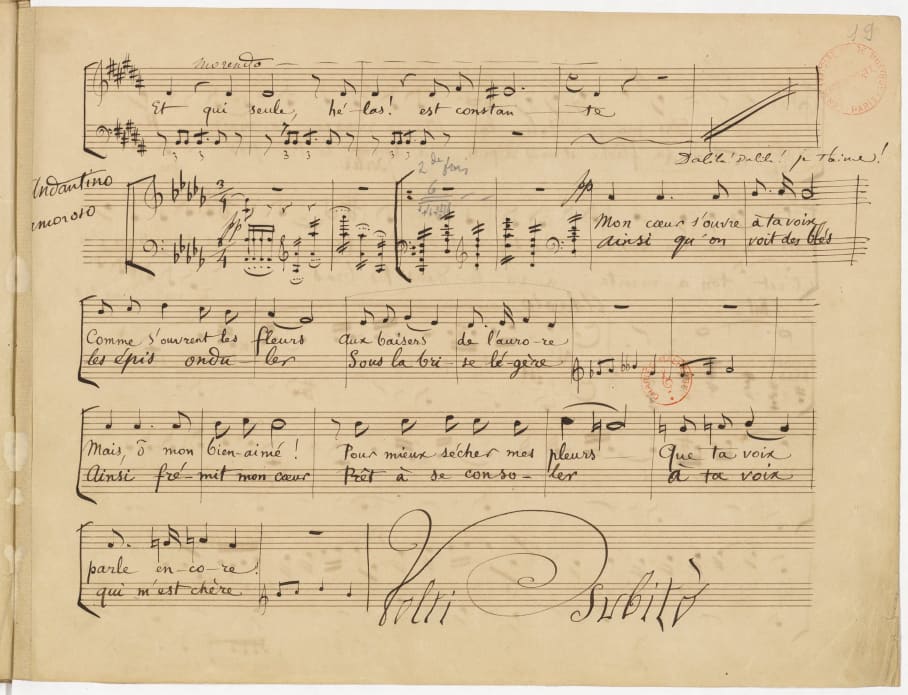 19
morendo
Et qui seule, hé-las! est constan - te
3 3 3 3 3
Dalila! Dalila! je t'aime!
Andantino
amoroso
2de fois
pp pp
Mon cœur s'ouvre à ta voix
Ainsi qu'on voit des blés
Comme s'ouvrent les fleurs aux baisers de l'auro-re
les épis ondu-ler Sous la bri-se lé-gère
Mais, ô mon bien-aimé! Pour mieux sécher mes pleurs Que ta voix
Ainsi fré-mit mon cœur Prêt à se conso-ler à ta voix
parle en-co-re!
qui m'est chère
Volti Subitò